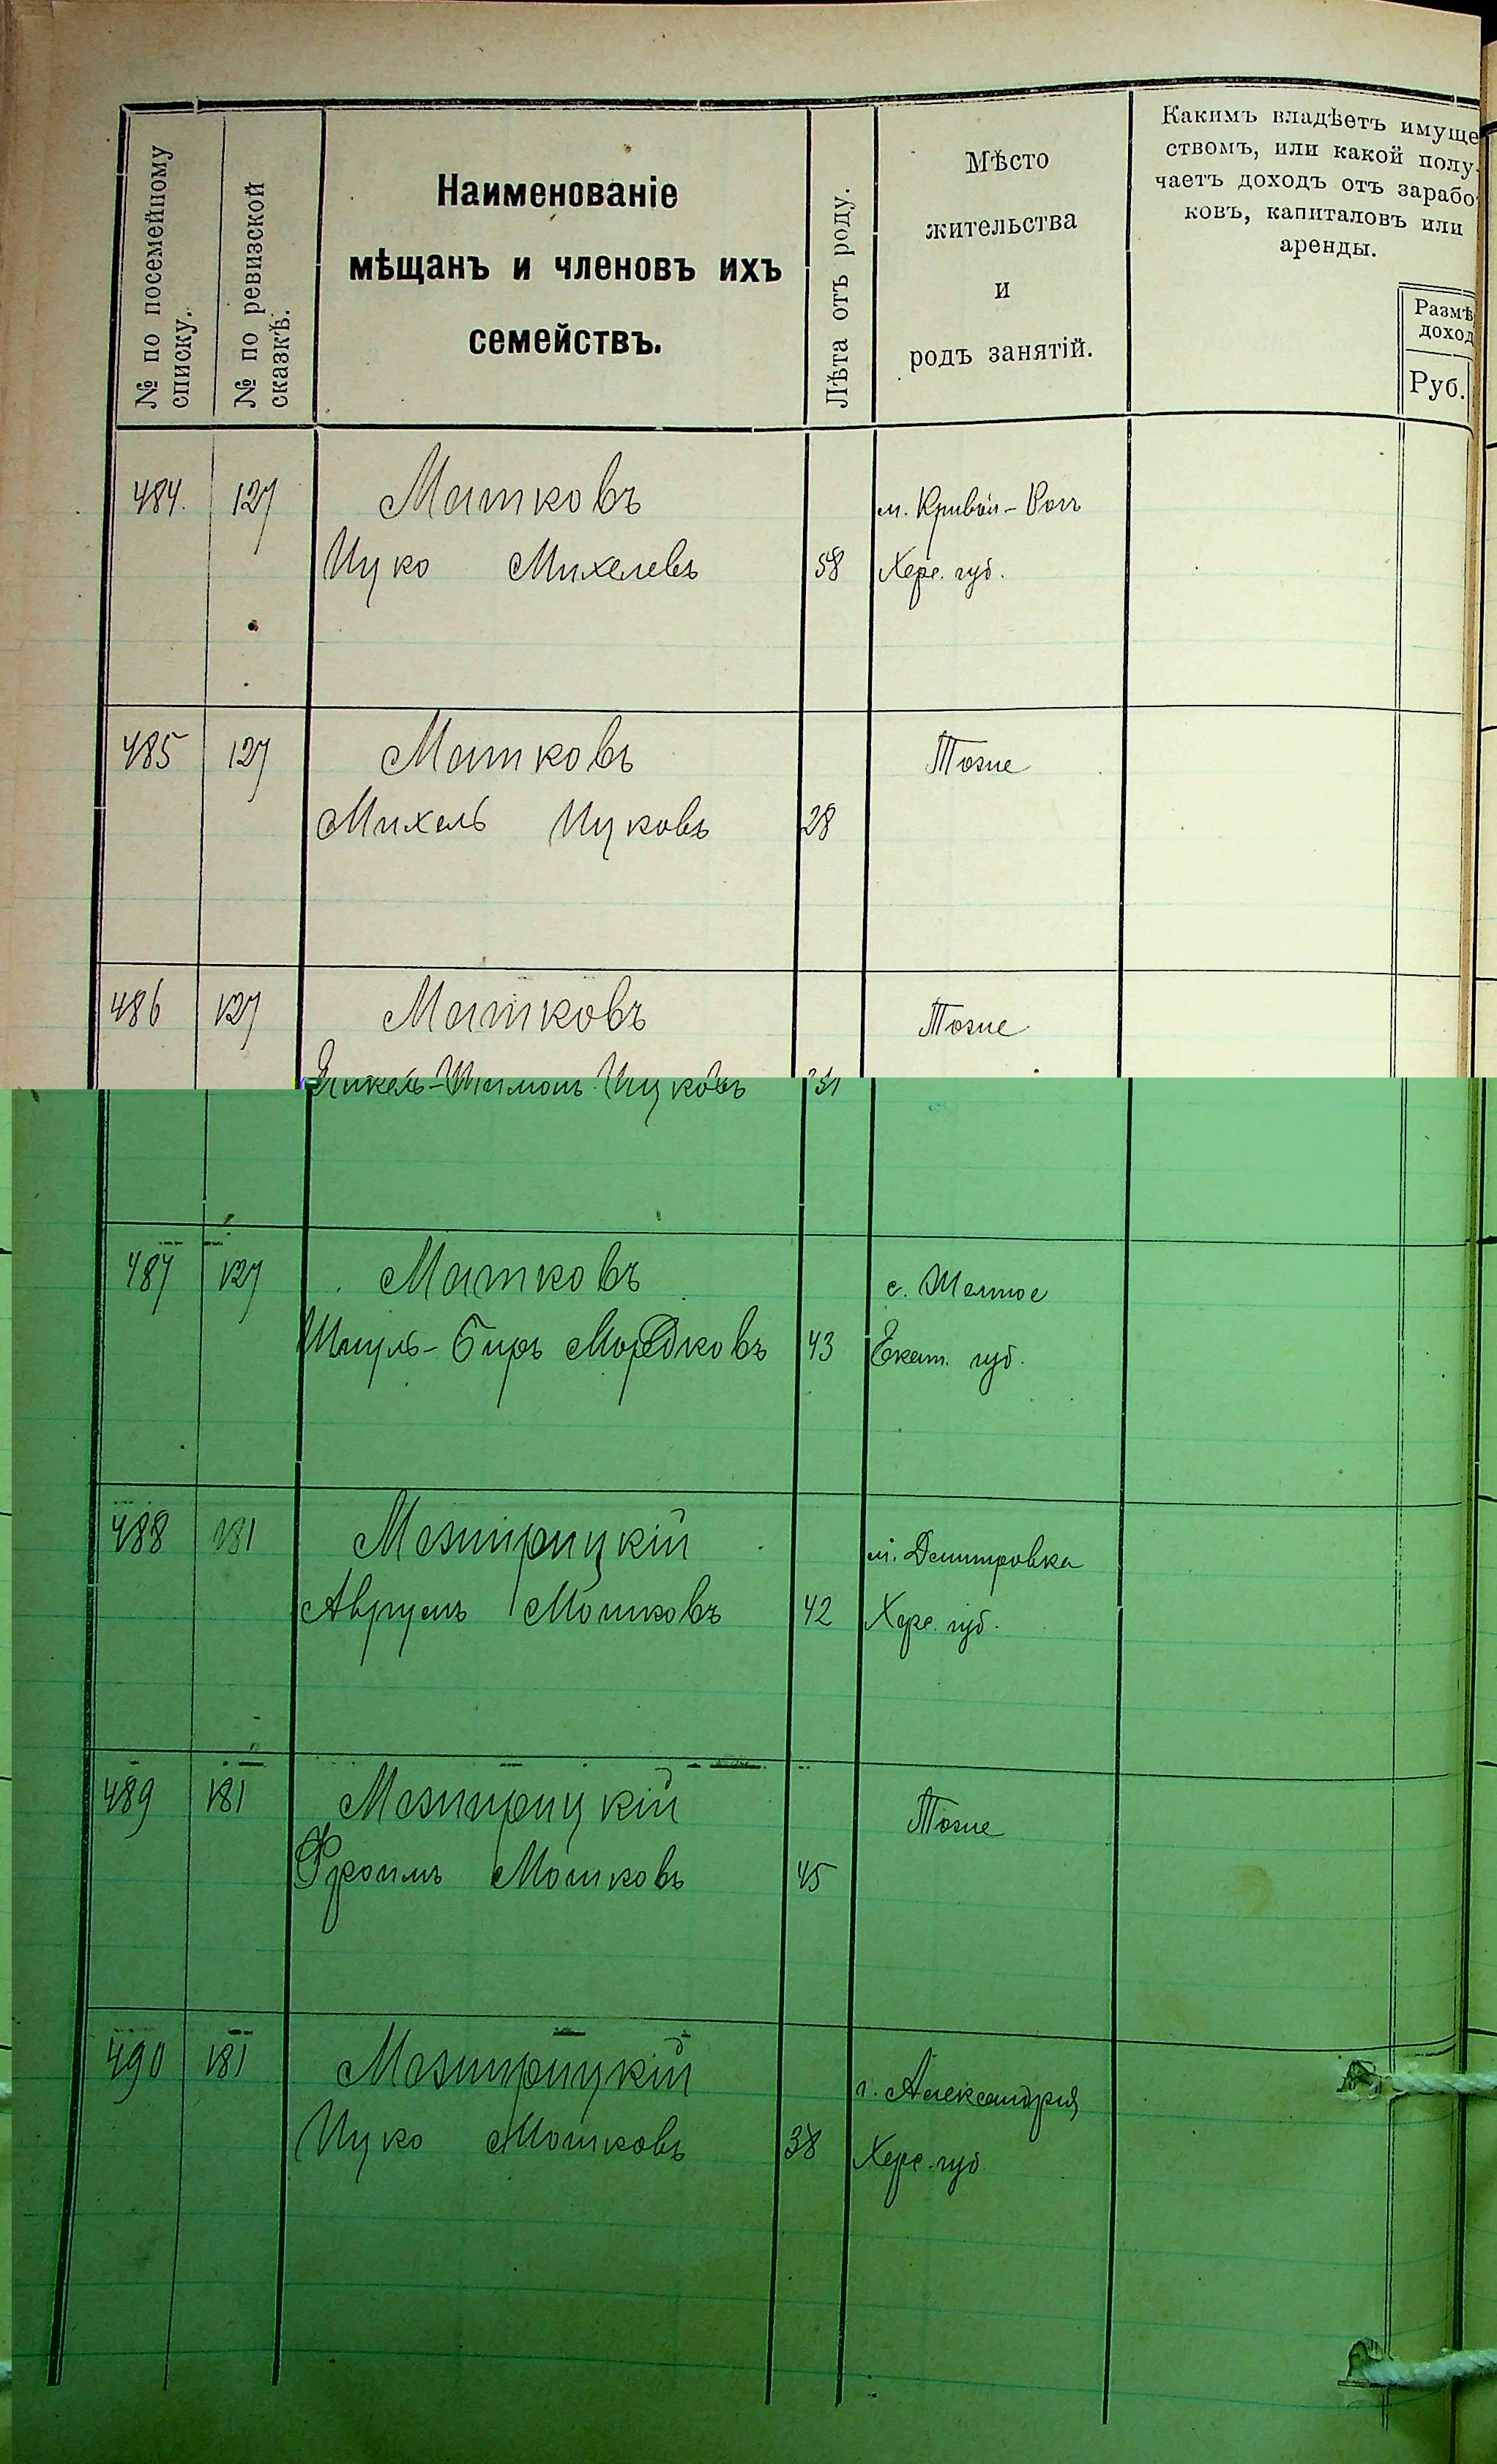 № по посемейному
списку.
№ по ревизской
сказкѣ.
Наименованіе
мѣщанъ и членовъ ихъ
семействъ.
Лѣта отъ роду.
Мѣсто
жительства
и
родъ занятій.
Какимъ владѣетъ имуще
ствомъ, или какой полу-
чаетъ доходъ отъ зарабо
ковъ, капиталовъ или
аренды.
Размѣ
доход
Руб.
484. 127 Матковъ м. Кривой-Рогъ
Ицко Михелевъ 58 Херс. губ.
485 127 Матковъ Тоже
Михель Ицковъ 28
486 127 Матковъ Тоже
Ицковъ
487 127 Матковъ с. Желтое
Шмуль- Мордковъ 43 Екат. губ.
488 181 Мезирицкій м. Дмитровка
Аврумъ Мошковъ 42 Херс. губ.
489 181 Мезирицкій Тоже
Фроимъ Мошковъ 45
490 181 Мезирицкій г. Александрія
Ицко Мошковъ 38 Херс. губ